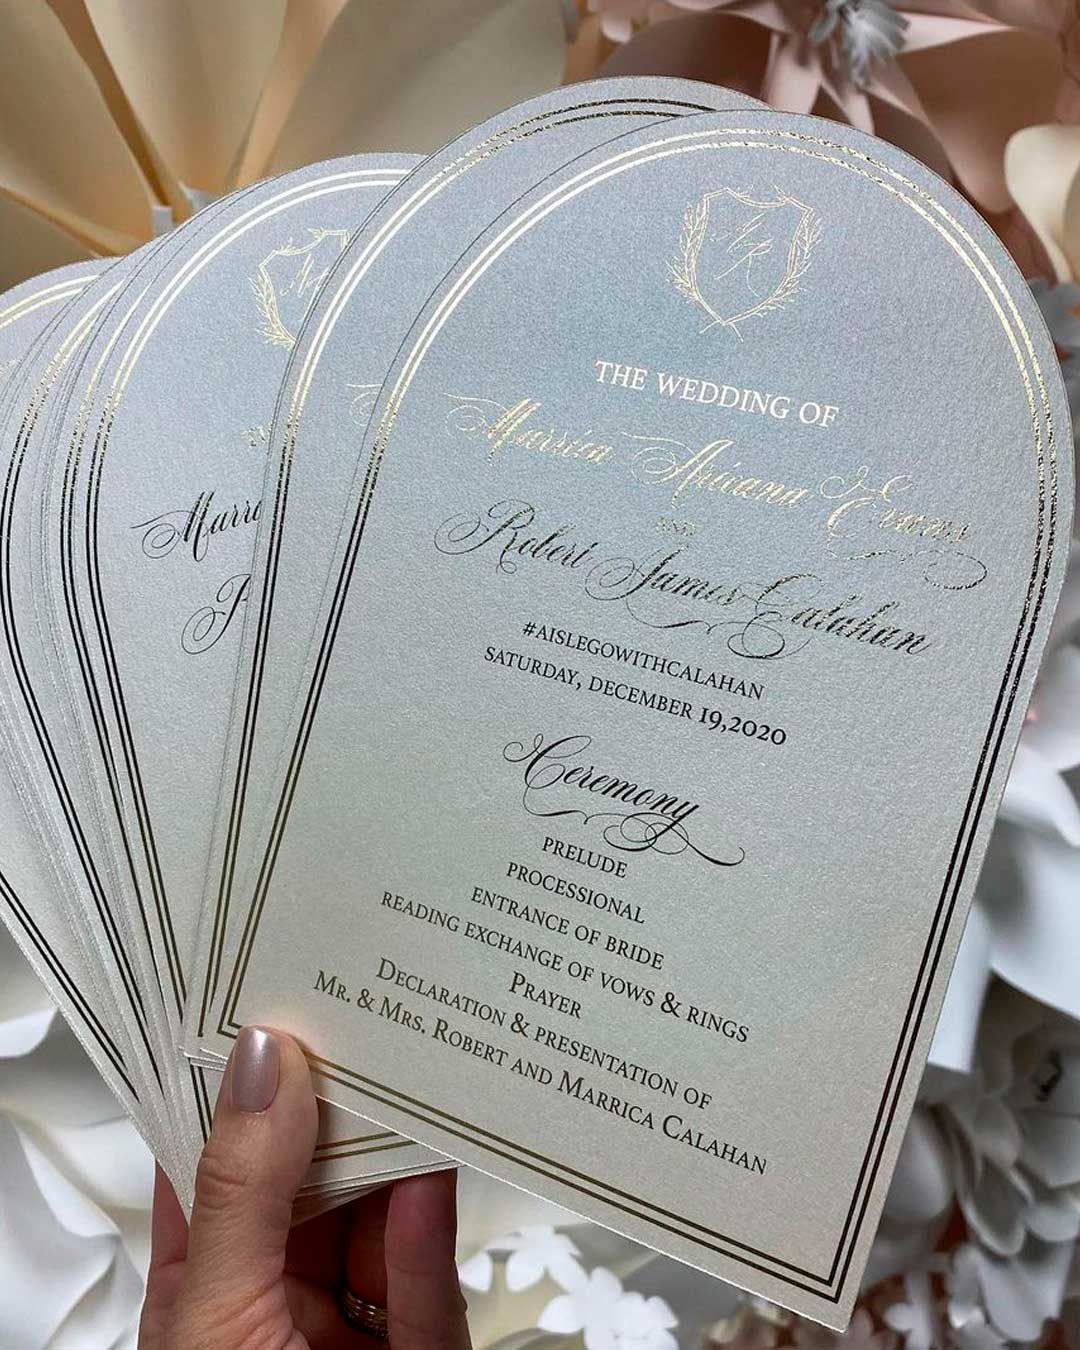 MR
THE WEDDING OF
Marrica Aricana Evans
AND
Robert James Calahan
#AISLEGOWITHCALAHAN
SATURDAY, DECEMBER 19,2020
Ceremony
PRELUDE
PROCESSIONAL
ENTRANCE OF BRIDE
READING EXCHANGE OF VOWS & RINGS
PRAYER
DECLARATION & PRESENTATION OF
MR. & MRS. ROBERT AND MARRICA CALAHAN